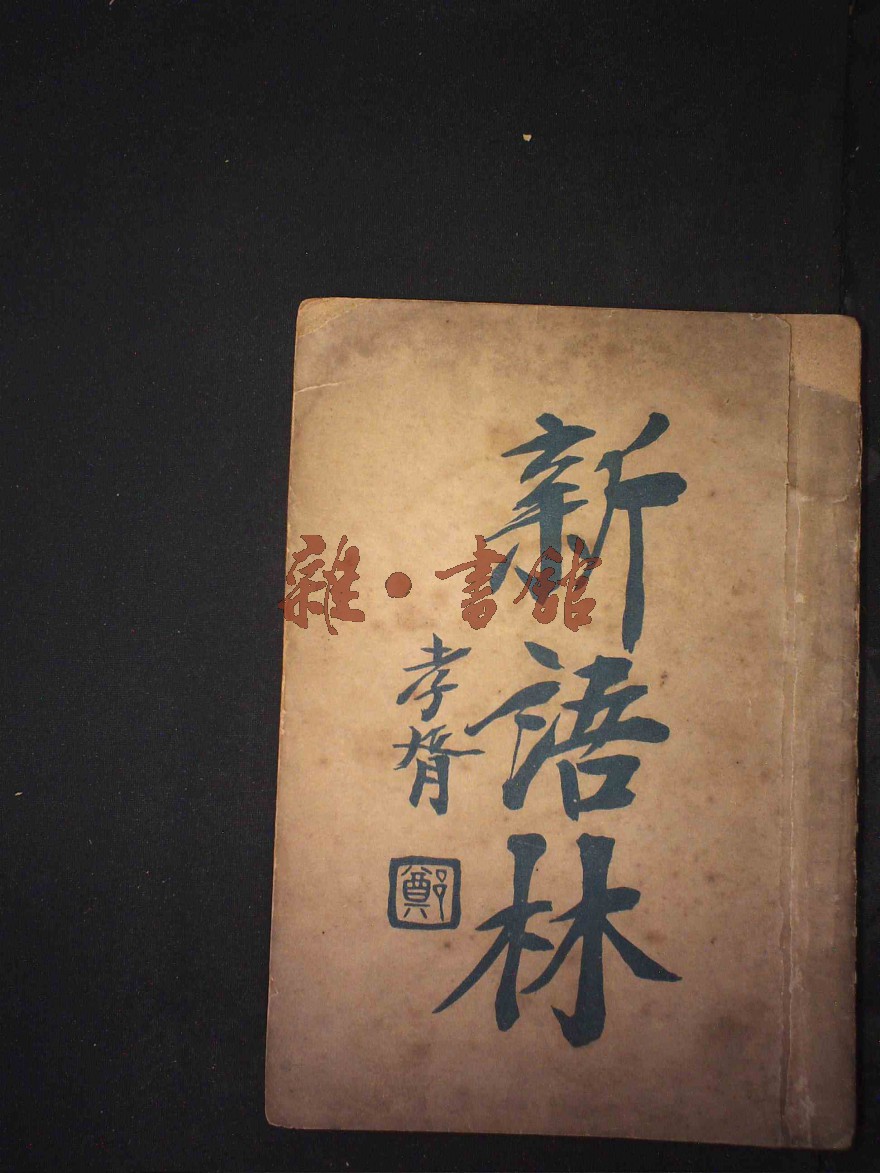 新語林
孝胥
鄭
雜·書館